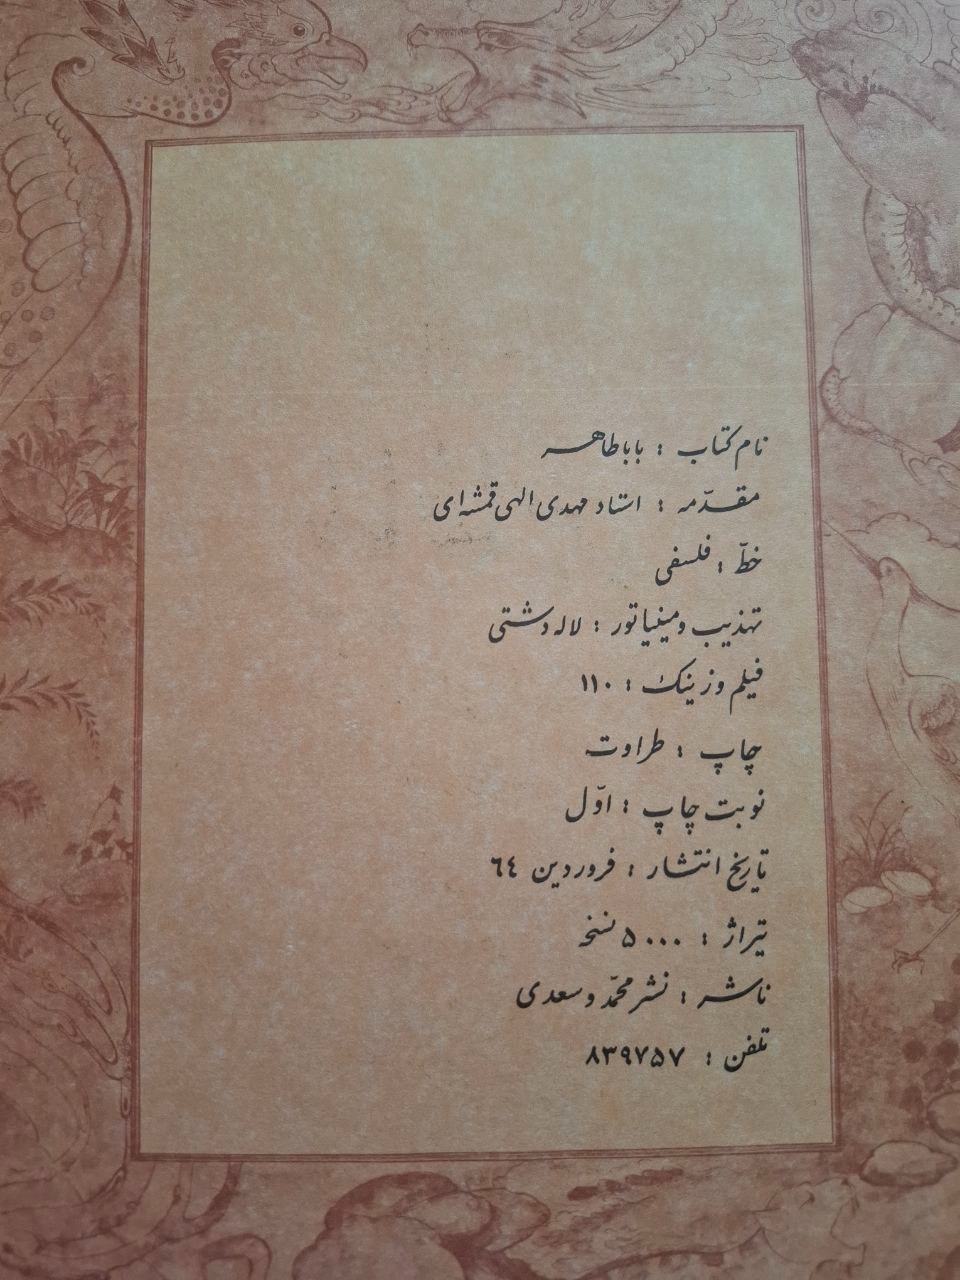 نام کتاب : باباطاهر
مقدّمه : استاد مهدی الهی قمشه‌ای
خطّ : فلسفی
تهذیب و مینیاتور : لاله دشتی
فیلم و زینک : ۱۱۰
چاپ : طراوت
نوبت چاپ : اوّل
تاریخ انتشار : فروردین ٦٤
تیراژ : ۵۰۰۰ نسخه
ناشر : نشر محمّد و سعدی
تلفن : ۸۳۹۷۵۷